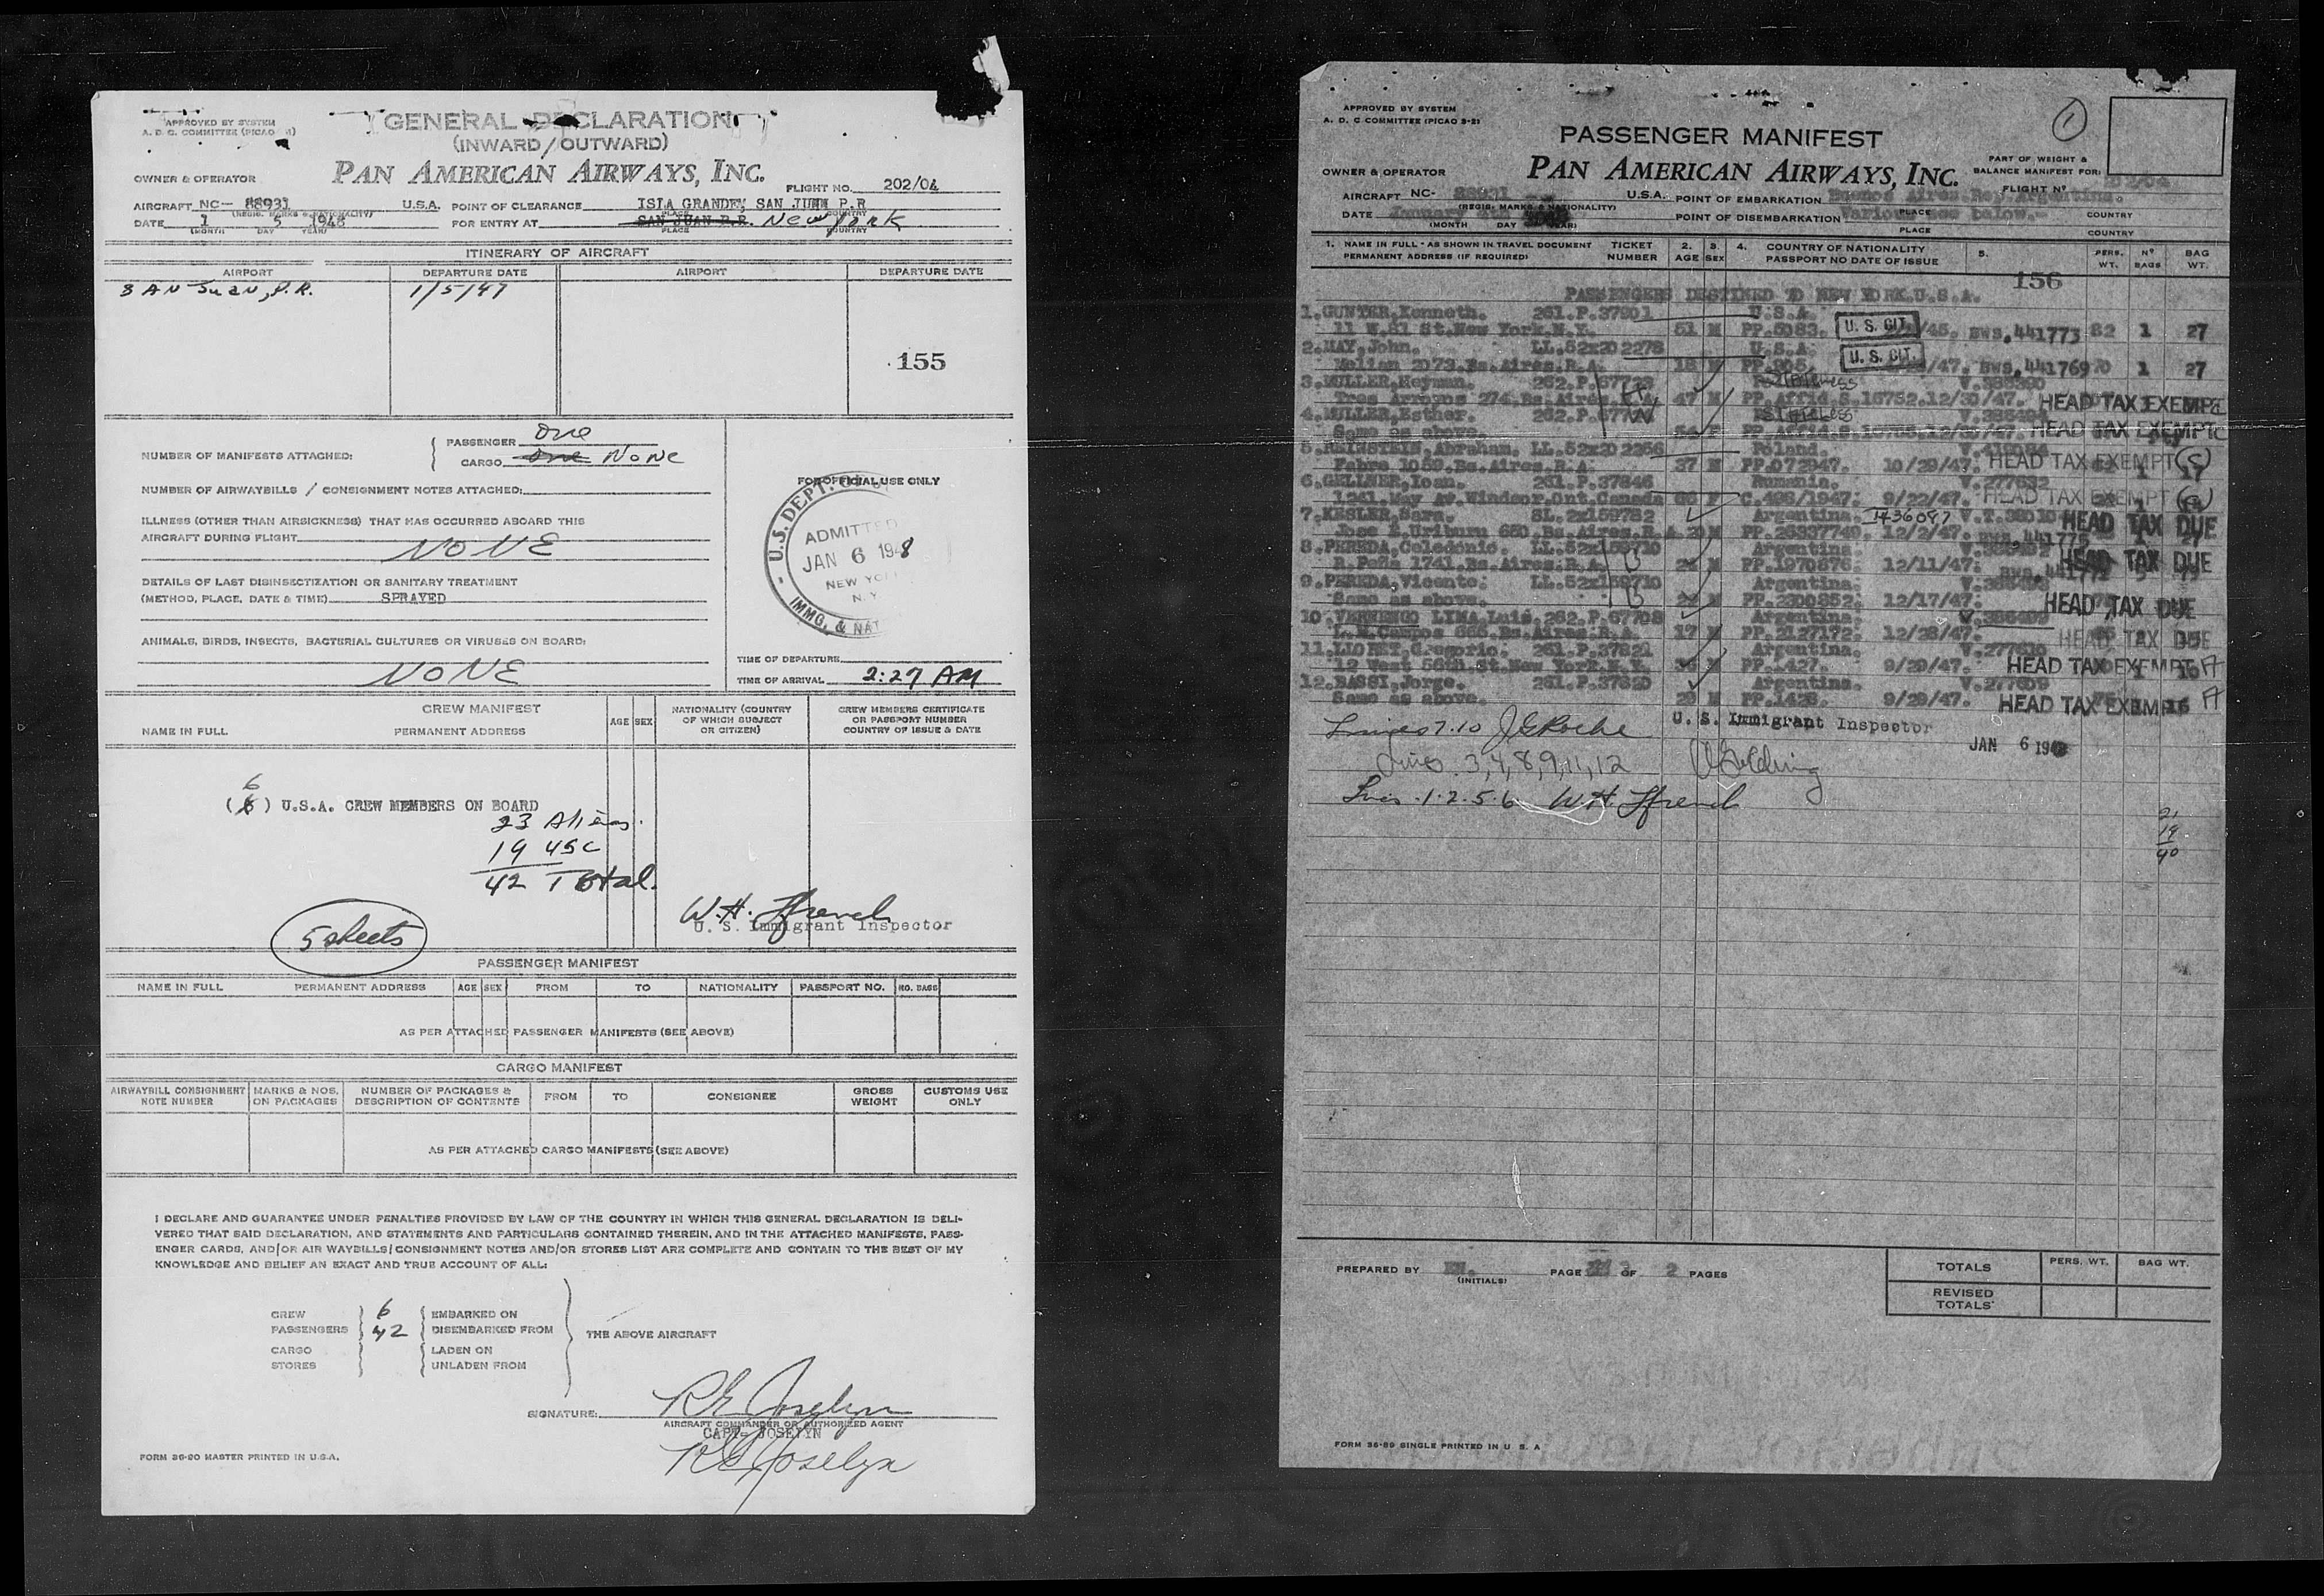 APPROVED BY SYSTEM
A. D. C. COMMITTEE (PICAO
GENERAL DECLARATION
(INWARD/OUTWARD)
PAN AMERICAN AIRWAYS, INC.
OWNER & OPERATOR
FLIGHT NO. 202/04
AIRCRAFT NC- 88931 U.S.A. POINT OF CLEARANCE ISLA GRANDEY SAN JUHN P.R
(REGIS. MARKS & NATIONALITY) PLACE COUNTRY
DATE 1 5 1948 FOR ENTRY AT SAN JUAN P.R. New York
(MONTH DAY YEAR) PLACE COUNTRY
ITINERARY OF AIRCRAFT
AIRPORT DEPARTURE DATE AIRPORT DEPARTURE DATE
SAN JuaN, P.R. 1/5/47
155
NUMBER OF MANIFESTS ATTACHED: PASSENGER One
CARGO One NoNe
NUMBER OF AIRWAYBILLS / CONSIGNMENT NOTES ATTACHED:
ILLNESS (OTHER THAN AIRSICKNESS) THAT HAS OCCURRED ABOARD THIS
AIRCRAFT DURING FLIGHT NONE
DETAILS OF LAST DISINSECTIZATION OR SANITARY TREATMENT
(METHOD, PLACE, DATE & TIME) SPRAYED
ANIMALS, BIRDS, INSECTS, BACTERIAL CULTURES OR VIRUSES ON BOARD:
NONE
FOR OFFICIAL USE ONLY
U.S. DEPT. OF
ADMITTED
JAN 6 1948
NEW YORK
N. Y.
IMMG. & NAT
TIME OF DEPARTURE
TIME OF ARRIVAL 2:27 AM
CREW MANIFEST
NAME IN FULL PERMANENT ADDRESS AGE SEX
NATIONALITY (COUNTRY
OF WHICH SUBJECT
OR CITIZEN)
CREW MEMBERS CERTIFICATE
OR PASSPORT NUMBER
COUNTRY OF ISSUE & DATE
6
( ) U.S.A. CREW MEMBERS ON BOARD
23 Aliens.
19 USC
42 Total.
5 sheets
W.H. Ffrench
U. S. Immigrant Inspector
PASSENGER MANIFEST
NAME IN FULL PERMANENT ADDRESS AGE SEX FROM TO NATIONALITY PASSPORT NO. NO. BAGS
AS PER ATTACHED PASSENGER MANIFESTS (SEE ABOVE)
CARGO MANIFEST
AIRWAYBILL CONSIGNMENT NOTE NUMBER MARKS & NOS. ON PACKAGES NUMBER OF PACKAGES & DESCRIPTION OF CONTENTS FROM TO CONSIGNEE GROSS WEIGHT CUSTOMS USE ONLY
AS PER ATTACHED CARGO MANIFESTS (SEE ABOVE)
I DECLARE AND GUARANTEE UNDER PENALTIES PROVIDED BY LAW OF THE COUNTRY IN WHICH THIS GENERAL DECLARATION IS DELI-
VERED THAT SAID DECLARATION, AND STATEMENTS AND PARTICULARS CONTAINED THEREIN, AND IN THE ATTACHED MANIFESTS, PASS-
ENGER CARDS, AND/OR AIR WAYBILLS/CONSIGNMENT NOTES AND/OR STORES LIST ARE COMPLETE AND CONTAIN TO THE BEST OF MY
KNOWLEDGE AND BELIEF AN EXACT AND TRUE ACCOUNT OF ALL:
CREW 6 EMBARKED ON
PASSENGERS 42 DISEMBARKED FROM THE ABOVE AIRCRAFT
CARGO LADEN ON
STORES UNLADEN FROM
SIGNATURE: RE Joselyn
AIRCRAFT COMMANDER OR AUTHORIZED AGENT
CAPT- JOSELYN
RE Joselyn
FORM 36-90 MASTER PRINTED IN U.S.A.
APPROVED BY SYSTEM
A. D. C COMMITTEE (PICAO 3-2)
1
PASSENGER MANIFEST
PAN AMERICAN AIRWAYS, INC.
PART OF WEIGHT &
BALANCE MANIFEST FOR:
OWNER & OPERATOR
FLIGHT Nº 202/04
AIRCRAFT NC- 88931 U.S.A. POINT OF EMBARKATION Buenos Aires. Rep. Argentina.
(REGIS. MARKS & NATIONALITY) PLACE COUNTRY
DATE January POINT OF DISEMBARKATION Various see below.-
(MONTH DAY YEAR) PLACE COUNTRY
1. NAME IN FULL - AS SHOWN IN TRAVEL DOCUMENT TICKET 2. 3. 4. COUNTRY OF NATIONALITY 5. PERS. Nº BAG
PERMANENT ADDRESS (IF REQUIRED) NUMBER AGE SEX PASSPORT NO DATE OF ISSUE WT. BAGS WT.
156
PASSENGERS DESTINED TO NEW YORK.U.S.A.
1.GUNTER,Kenneth. 261.P.37201 U.S.A.
11 W.81 St.New York.N.Y. 51 M PP.5083. U. S. CIT. /45. BWS.441773 82 1 27
2.MAY,John. LL.52x202278 U.S.A.
Melian 2073.Bs.Aires.R.A. 18 M U. S. CIT. /47. BWS.441769 70 1 27
3.MULLER,Heyman. 262.P.67 Stateless V.385390
Tres Arroyos 274.Bs.Aires.R.A. 47 M PP.Affid.S.16752.12/30/47. HEAD TAX EXEMPT
4.MULLER,Esther. 262.P.677 Stateless
Same as above. HEAD TAX EXEMPT
5.REINSTEIN,Abraham. LL.52x202256 Poland.
Fabre 1059.Bs.Aires.R.A. 37 M PP.072947. 10/29/47. HEAD TAX EXEMPT (C) 1 17
6.GELLNER,Ioan. 261.P.37846 Rumania. V.277632
1241.May Av.Windsor.Ont.Canada 60 C.498/1947. 9/22/47. HEAD TAX EXEMPT
7.KESLER,Sara. SL.2x159782 Argentina. 1436087 V.T.38010
Jose E.Uriburu 650.Bs.Aires.R.A. PP.26337749. 12/2/47. HEAD TAX DUE
8.PEREDA,Celedonio. LL.52x159710 Argentina.
R.Peña 1741.Bs.Aires.R.A. PP.1970876. 12/11/47. HEAD TAX DUE
9.PEREDA,Vicente. LL.52x159710 Argentina.
Same as above. PP.2300852. 12/17/47. HEAD TAX DUE
10.VERNENGO LIMA,Luis.262.P.67708 Argentina.
L.M.Campos 665.Bs.Aires.R.A. 17 M PP.2127172. 12/23/47. HEAD TAX DUE
11.LLORET,Gregorio. 261.P.37821 Argentina. V.277610
12 West 56th.St.New York.N.Y. PP.1427. 9/29/47. HEAD TAX EXEMPT A
12.BASSI,Jorge. 261.P.37820 Argentina. V.277609
Same as above. 29 M PP.1428. 9/29/47. HEAD TAX EXEMPT A
Lines 7.10 J G Roche U. S. Immigrant Inspector
JAN 6 1948
Lines 3,4,8,9,11,12
Lines .1.2.5.6 W.H. Ffrench
21
19
40
PREPARED BY (INITIALS) PAGE OF 2 PAGES
TOTALS PERS. WT. BAG WT.
REVISED TOTALS
FORM 36-89 SINGLE PRINTED IN U S. A